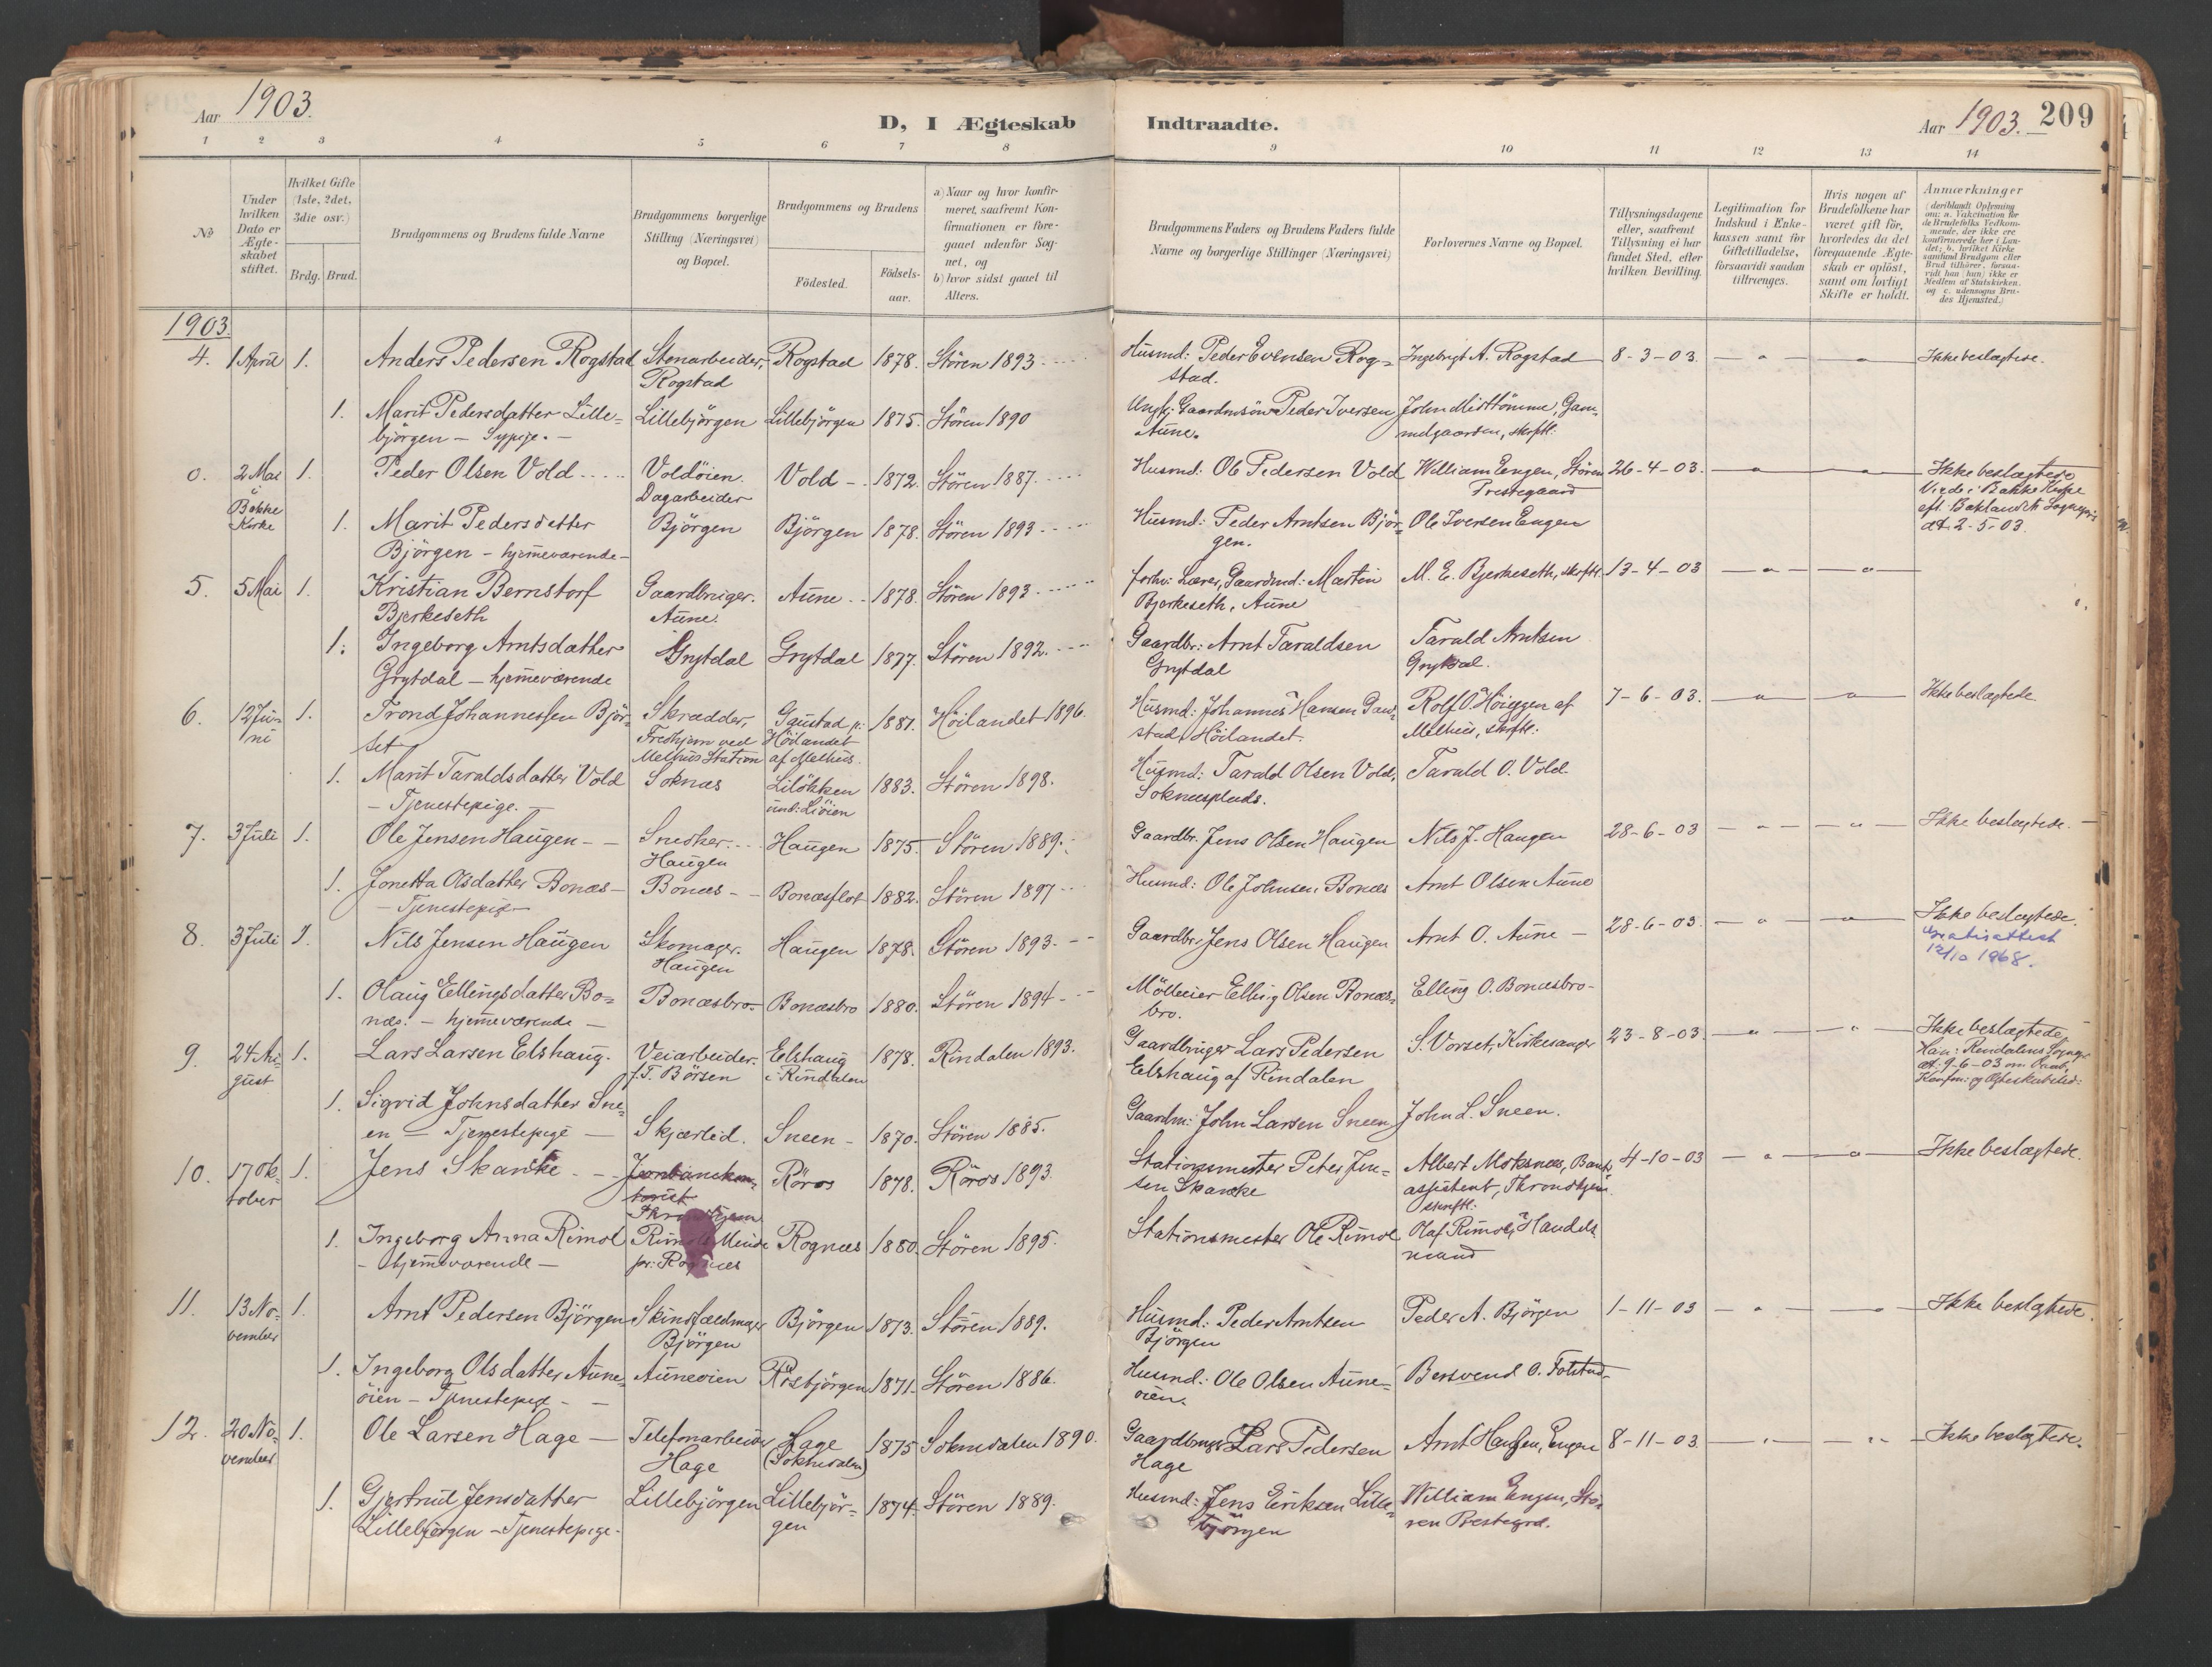 Aar 1903.
D, I Ægteskab Indtraadte.
Aar 1903. 209
1 2 3 4 5 6 7 8 9 10 11 12 13 14
No
Under hvilken Dato er Ægteskabet stiftet.
Hvilket Gifte (1ste, 2det, 3die osv.)
Brdg. Brud.
Brudgommens og Brudens fulde Navne
Brudgommens borgerlige Stilling (Næringsvei) og Bopæl.
Brudgommens og Brudens
Fødested.
Fødselsaar.
a) Naar og hvor konfirmeret, saafremt Konfirmationen er foregaaet udenfor Sognet, og
b) hvor sidst gaaet til Alters.
Brudgommens Faders og Brudens Faders fulde Navne og borgerlige Stillinger (Næringsvei)
Forlovernes Navne og Bopæl.
Tillysningsdagene eller, saafremt Tillysning ei har fundet Sted, efter hvilken Bevilling.
Legitimation for Indskud i Enkekassen samt for Giftetilladelse, forsaavidt saadan tiltrænges.
Hvis nogen af Brudefolkene har været gift før, hvorledes da det foregaaende Ægteskab er opløst, samt om lovligt Skifte er holdt.
Anmærkninger (deriblandt Oplysning om: a. Vakcination for de Brudefolks Vedkommende, der ikke ere konfirmerede her i Landet; b. hvilket Kirkesamfund Brudgom eller Brud tilhører, forsaavidt han (hun) ikke er Medlem af Statskirken, og c. udensogns Brudes Hjemsted.)
1903.
4. 1 April 1. Anders Pedersen Rogstad Stenarbeider, Rogstad Rogstad 1878. Stören 1893. Husmd: Peder Evensen Rogstad. Ingebrigt A. Rogstad 8-3-03. Ikke beslægtede.
1. Marit Pedersdatter Lillebjörgen - Sypige. - Lillebjörgen Lillebjörgen 1875. Stören 1890 Ungk: Gaardmsön Peder Iversen Aune. John Midttömme, Gammelgaarden, skriftl:
0. 2 Mai i Bakke Kirke 1. Peder Olsen Vold Voldöien. Dagarbeider Vold - 1872. Stören 1887. Husmd: Ole Pedersen Vold William Engen, Stören Prestegaard 26-4-03. Ikke beslægtede Viede i Bakke Kirke eft. Baklandets Sognepr. dt. 2-5-03.
1. Marit Pedersdatter Björgen - hjemmeværende - Björgen Björgen 1878. Stören 1893 Husmd: Peder Arntsen Björgen. Ole Iversen Engen
5. 5 Mai 1. Kristian Bernstorf Bjerkeseth Gaardbruger. Aune. Aune 1878. Stören 1893. forhv: Lærer, Gaardmd: Martin Bjerkeseth, Aune M. E. Bjerkeseth, skriftl. 13-4-03
1. Ingeborg Arntsdatter Grytdal - hjemmeværende Grytdal Grytdal 1877. Stören 1892. Gaardbr: Arnt Taraldsen Grytdal Tarald Arntsen Grytdal.
6. 12 Juni 1. Trond Johannessen Björset Skrædder, Tredhjem ved Melhus Station Gaustad p: Höilandet af Melhus. 1881. Höilandet 1896. Husmd: Johannes Hansen Gaustad, Höilandet. Rolf O. Höieggen af Melhus, skriftl: 7-6-03. Ikke beslægtede
1. Marit Taraldsdatter Vold - Tjenestepige. - Soknæs Lilökken und: Liöien 1883. Stören 1898. Husmd: Tarald Olsen Vold, Soknæsplads. Tarald O. Vold
7. 3 Juli 1. Ole Jensen Haugen Snedker. Haugen Haugen 1875. Stören 1889. Gaardbr. Jens Olsen Haugen Nils J. Haugen 28-6-03 Ikke beslægtede.
1. Jonetta Olsdatter Bonæs - Tjenestepige Bonæs Bonæsflot 1882. Stören 1897 Husmd: Ole Johnsen Bonæs Arnt Olsen Aune
8. 3 Juli 1. Nils Jensen Haugen Skomager. Haugen Haugen 1878. Stören 1893. Gaardbr: Jens Olsen Haugen Arnt O. Aune 28-6-03. Ikke beslægtede. Gratisattest 12/10 1968.
1. Olaug Ellingsdatter Bonæs. - hjemmeværende - Bonæsbro Bonæsbro 1880. Stören 1894 Mölleeier Elling Olsen Bonæsbro. Elling O. Bonæsbro
9. 24 August 1. Lars Larsen Elshaug. Veiarbeider. f.T. Börsen Elshaug i Rindalen 1878. Rindalen 1893. Gaardbruger Lars Pedersen Elshaug af Rindalen S. Vorset, Kirkesanger 23-8-03. Ikke beslægtede, Han: Rindalens Sognepr. att. 9-6-03 om Daab, Konfm: og Ægteskabsled:
1. Sigrid Johnsdatter Sneen - Tjenestepige - Skjærlid. Sneen 1870. Stören 1885. Gaardm: John Larsen Sneen John L. Sneen.
10. 17 Oktober 1. Jens Skancke Jernbanekontorist Thronhjem Röros 1878. Röros 1893. Stationsmester Peter Jensen Skancke Albert Moksnes, Bankassistent, Throndhjem skriftl: 4-10-03 Ikke beslægtede.
1. Ingeborg Anna Rimol - hjemmeværende - Rimols Minde pr: Rognæs Rognæs 1880. Stören 1895. Stationsmester Ole Rimol Olaf Rimol, Handelsmand
11. 13 November 1. Arnt Pedersen Björgen Skindfældmager Björgen Björgen 1873. Stören 1889. Husmd: Peder Arntsen Björgen Peder A. Björgen 1-11-03 Ikke beslægtede.
1. Ingeborg Olsdatter Auneöien - Tjenestepige - Auneöien Rösbjörgen 1871. Stören 1886. Husmd: Ole Olsen Auneöien. Bersvend O. Folstad
12. 20 November 1. Ole Larsen Hage Telefonarbeider Hage Hage (Soknedalen) 1875 Soknedalen 1890. Gaardbruger Lars Pedersen Hage Arnt Hansen, Engen 8-11-03. Ikke beslægtede.
1. Gjertrud Jensdatter Lillebjörgen - Tjenestepige. Lillebjörgen Lillebjörgen 1874. Stören 1889. Husmd: Jens Eriksen Lillebjörgen William Engen, Stören Prestegrd.